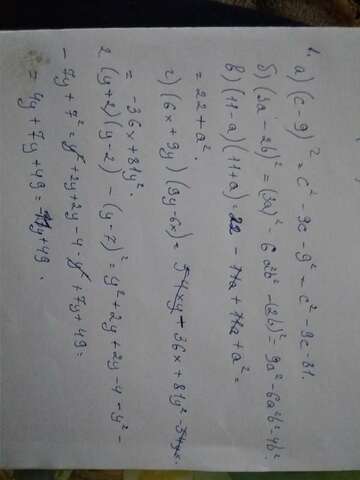 1. а) (c-9)² = c² - 9c - 9² = c² - 9c - 81.
б) (3a - 2b)² = (3a)² - 6a²b² - (2b)² = 9a² - 6a²b² - 4b².
в) (11-a)(11+a) = 22 - 11a + 11a + a² =
= 22 + a².
г) (6x+9y)(9y-6x) = 54xy + 36x + 81y² - 54yx
= -36x + 81y².
2. (y+2)(y-2) - (y-7)² = y² + 2y + 2y - 4 - y² -
- 7y + 7² = y² + 2y + 2y - 4 - y² + 7y + 49 =
= 4y + 7y + 49 = 11y + 49.